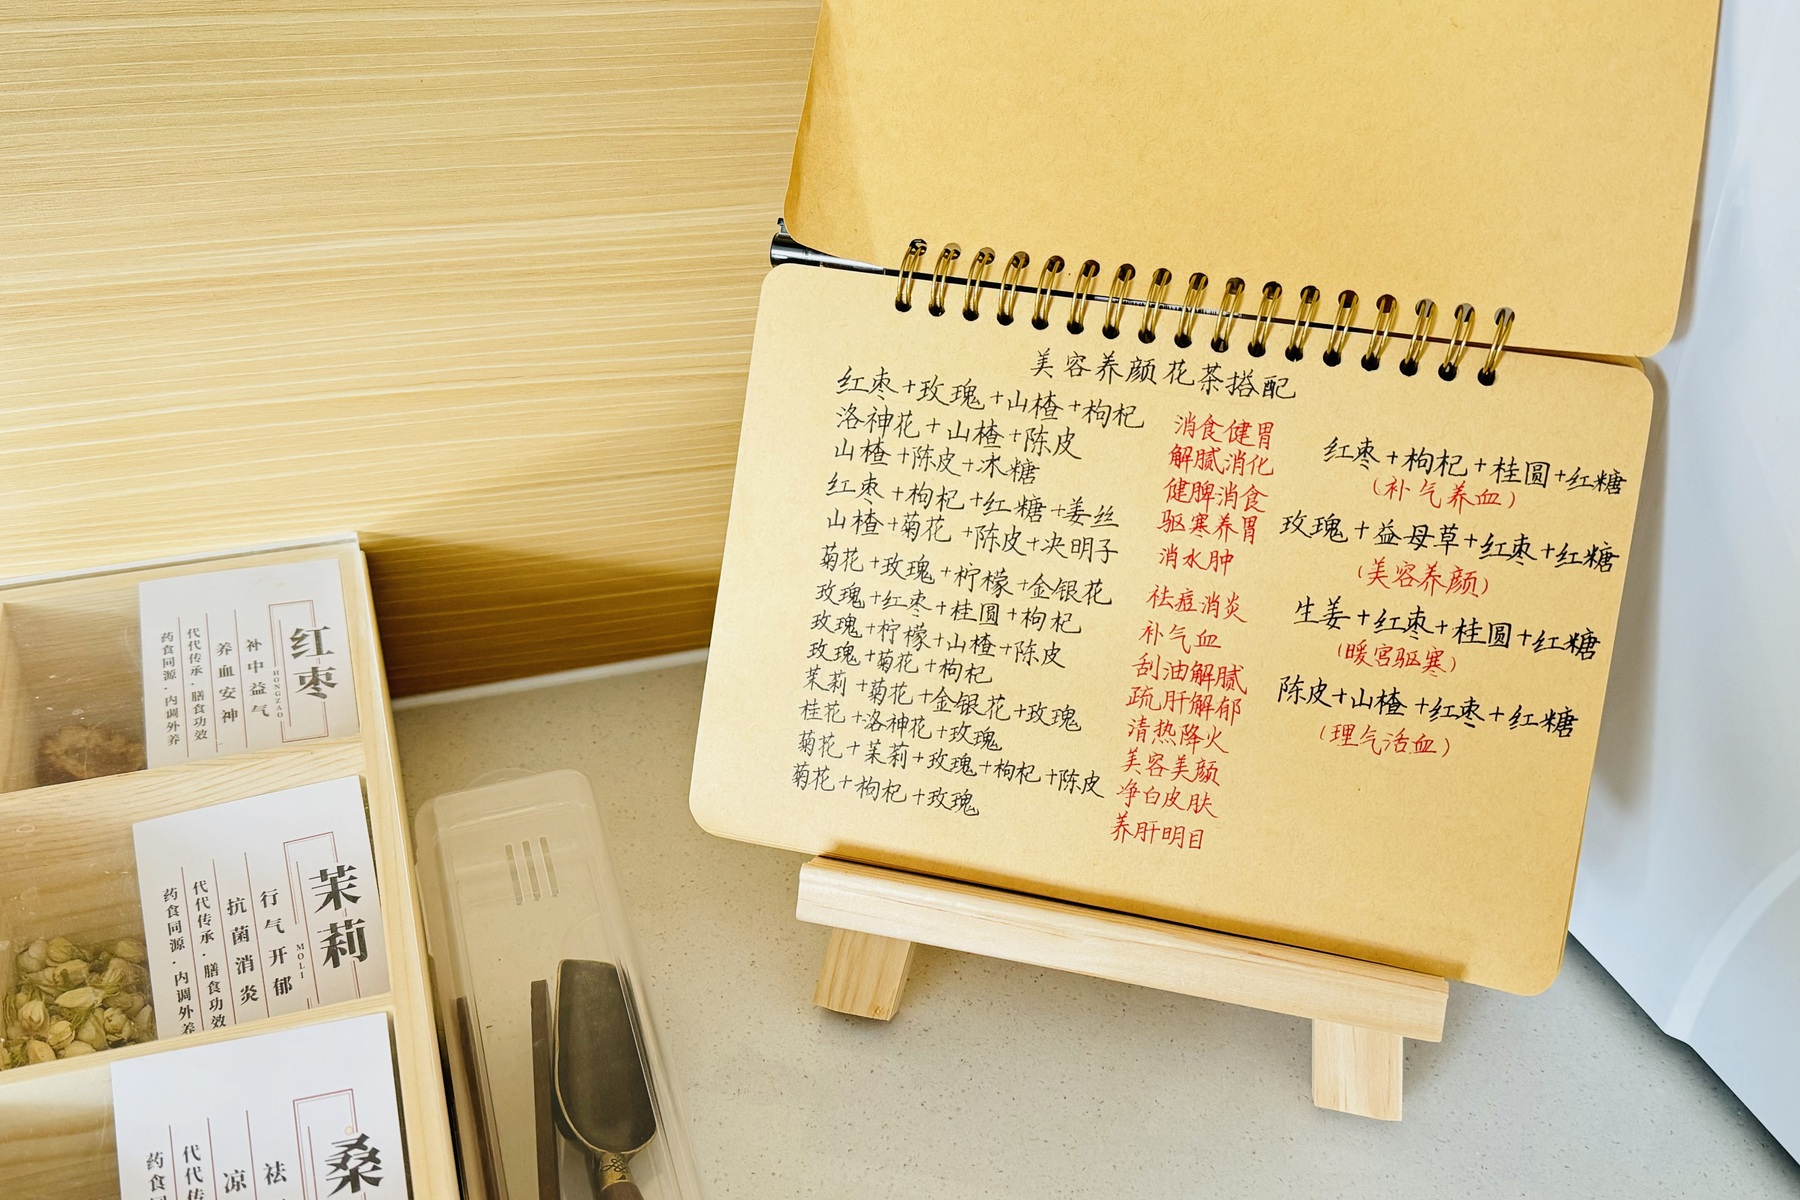 美容养颜花茶搭配
红枣+玫瑰+山楂+枸杞 消食健胃
洛神花+山楂+陈皮 解腻消化
山楂+陈皮+冰糖 健脾消食
红枣+枸杞+红糖+姜丝 驱寒养胃
山楂+菊花+陈皮+决明子 消水肿
菊花+玫瑰+柠檬+金银花 祛痘消炎
玫瑰+红枣+桂圆+枸杞 补气血
玫瑰+柠檬+山楂+陈皮 刮油解腻
玫瑰+菊花+枸杞 疏肝解郁
茉莉+菊花+金银花+玫瑰 清热降火
桂花+洛神花+玫瑰 美容美颜
菊花+茉莉+玫瑰+枸杞+陈皮 净白皮肤
菊花+枸杞+玫瑰 养肝明目
红枣+枸杞+桂圆+红糖
(补气养血)
玫瑰+益母草+红枣+红糖
(美容养颜)
生姜+红枣+桂圆+红糖
(暖宫驱寒)
陈皮+山楂+红枣+红糖
(理气活血)
红枣
HONGZAO
补中益气
养血安神
代代传承·膳食功效
药食同源·内调外养
茉莉
MOLI
行气开郁
抗菌消炎
代代传承·膳食功效
药食同源·内调外养
桑
祛
凉
代代传
药食同